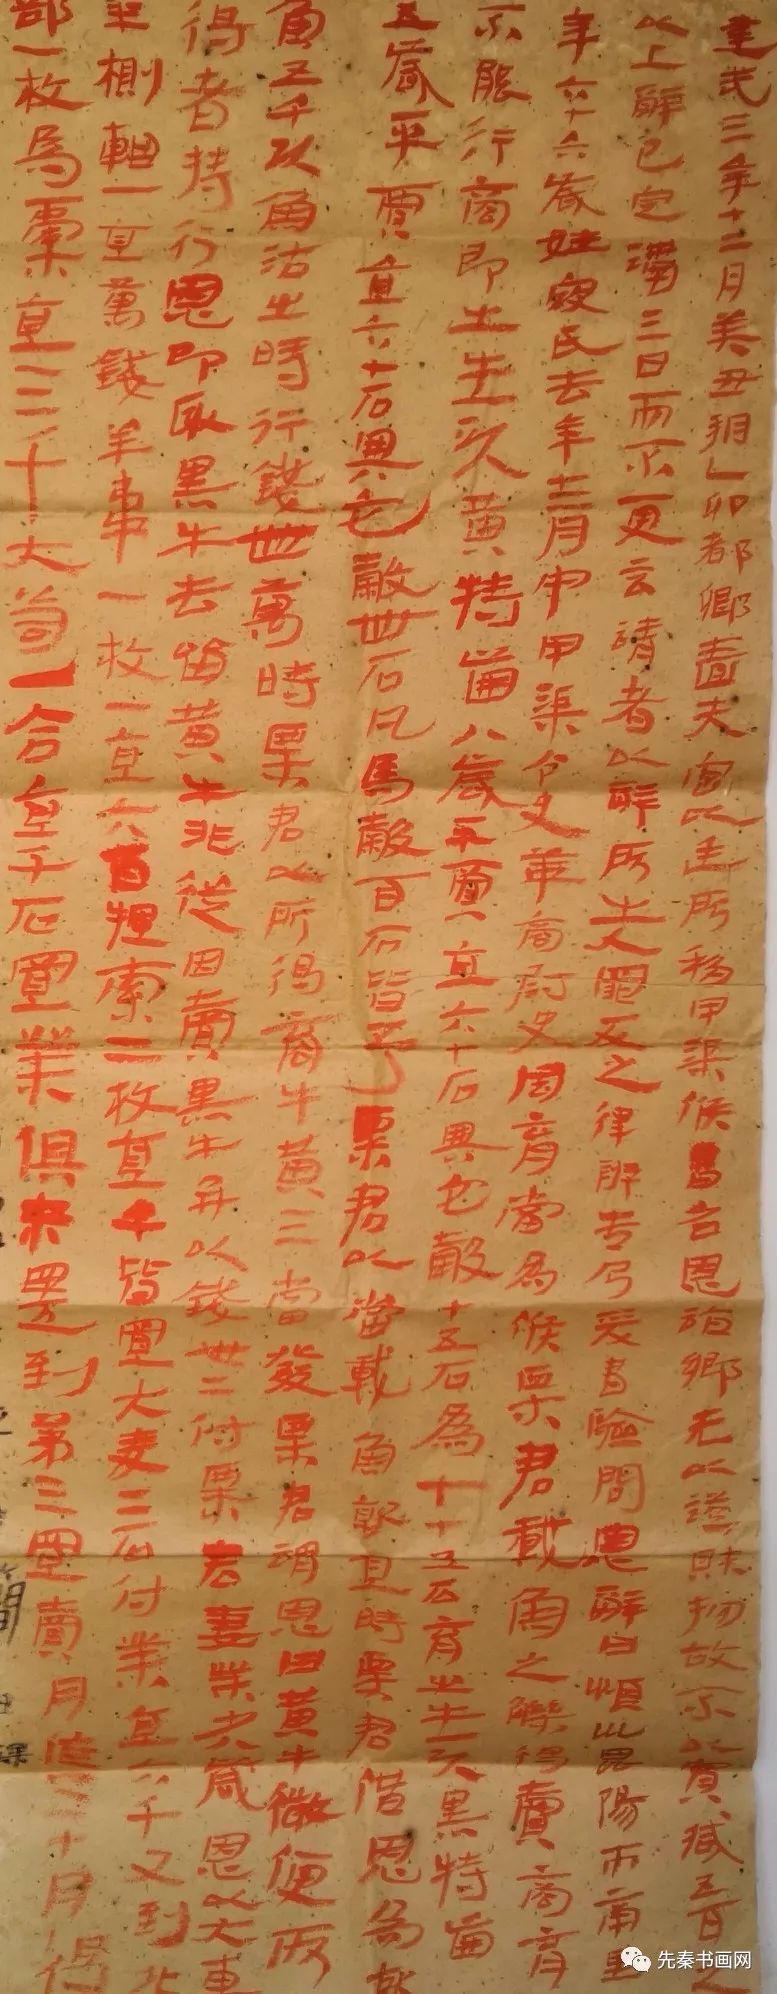 建武三年十二月癸丑朔乙卯都鄉嗇夫宮以廷所移甲渠候書召恩詣鄉先以證財物故不以實臧五百以
以上辭已定滿三日而不更言請者以辭所出入罪反之律辨告乃爰書驗問恩辭曰潁川昆陽市南里
年六十六歲姓寇氏去年十二月中甲渠令史華商尉史周育當為候粟君載魚之觻得賣商育
不能行商即出牛一頭黃特齒八歲平賈直六十石與它穀十五石為七十五石育出牛一頭黑特齒
五歲平賈直六十石與它穀卌石凡為穀百石皆予粟君以當載魚就直時粟君借恩為就
魚五千頭魚沽出時行錢卌萬時粟君以所得商牛黃三當發粟君謂恩曰黃牛微庾所
得者持行恩即取黑牛去留黃牛非從因賣黑牛并以錢卅二付粟君妻業少八歲恩以大車
半側軸一直萬錢羊韋一枚一直六百索二枚直千皆置大麥二石付業直六千又到北
部一枚為橐直三千大笥一合直千石置業俱來還到第三置賣月直二十月得
先秦书画网